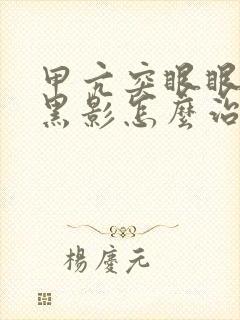 甲亢突眼眼
黑影怎麼治
楊慶元